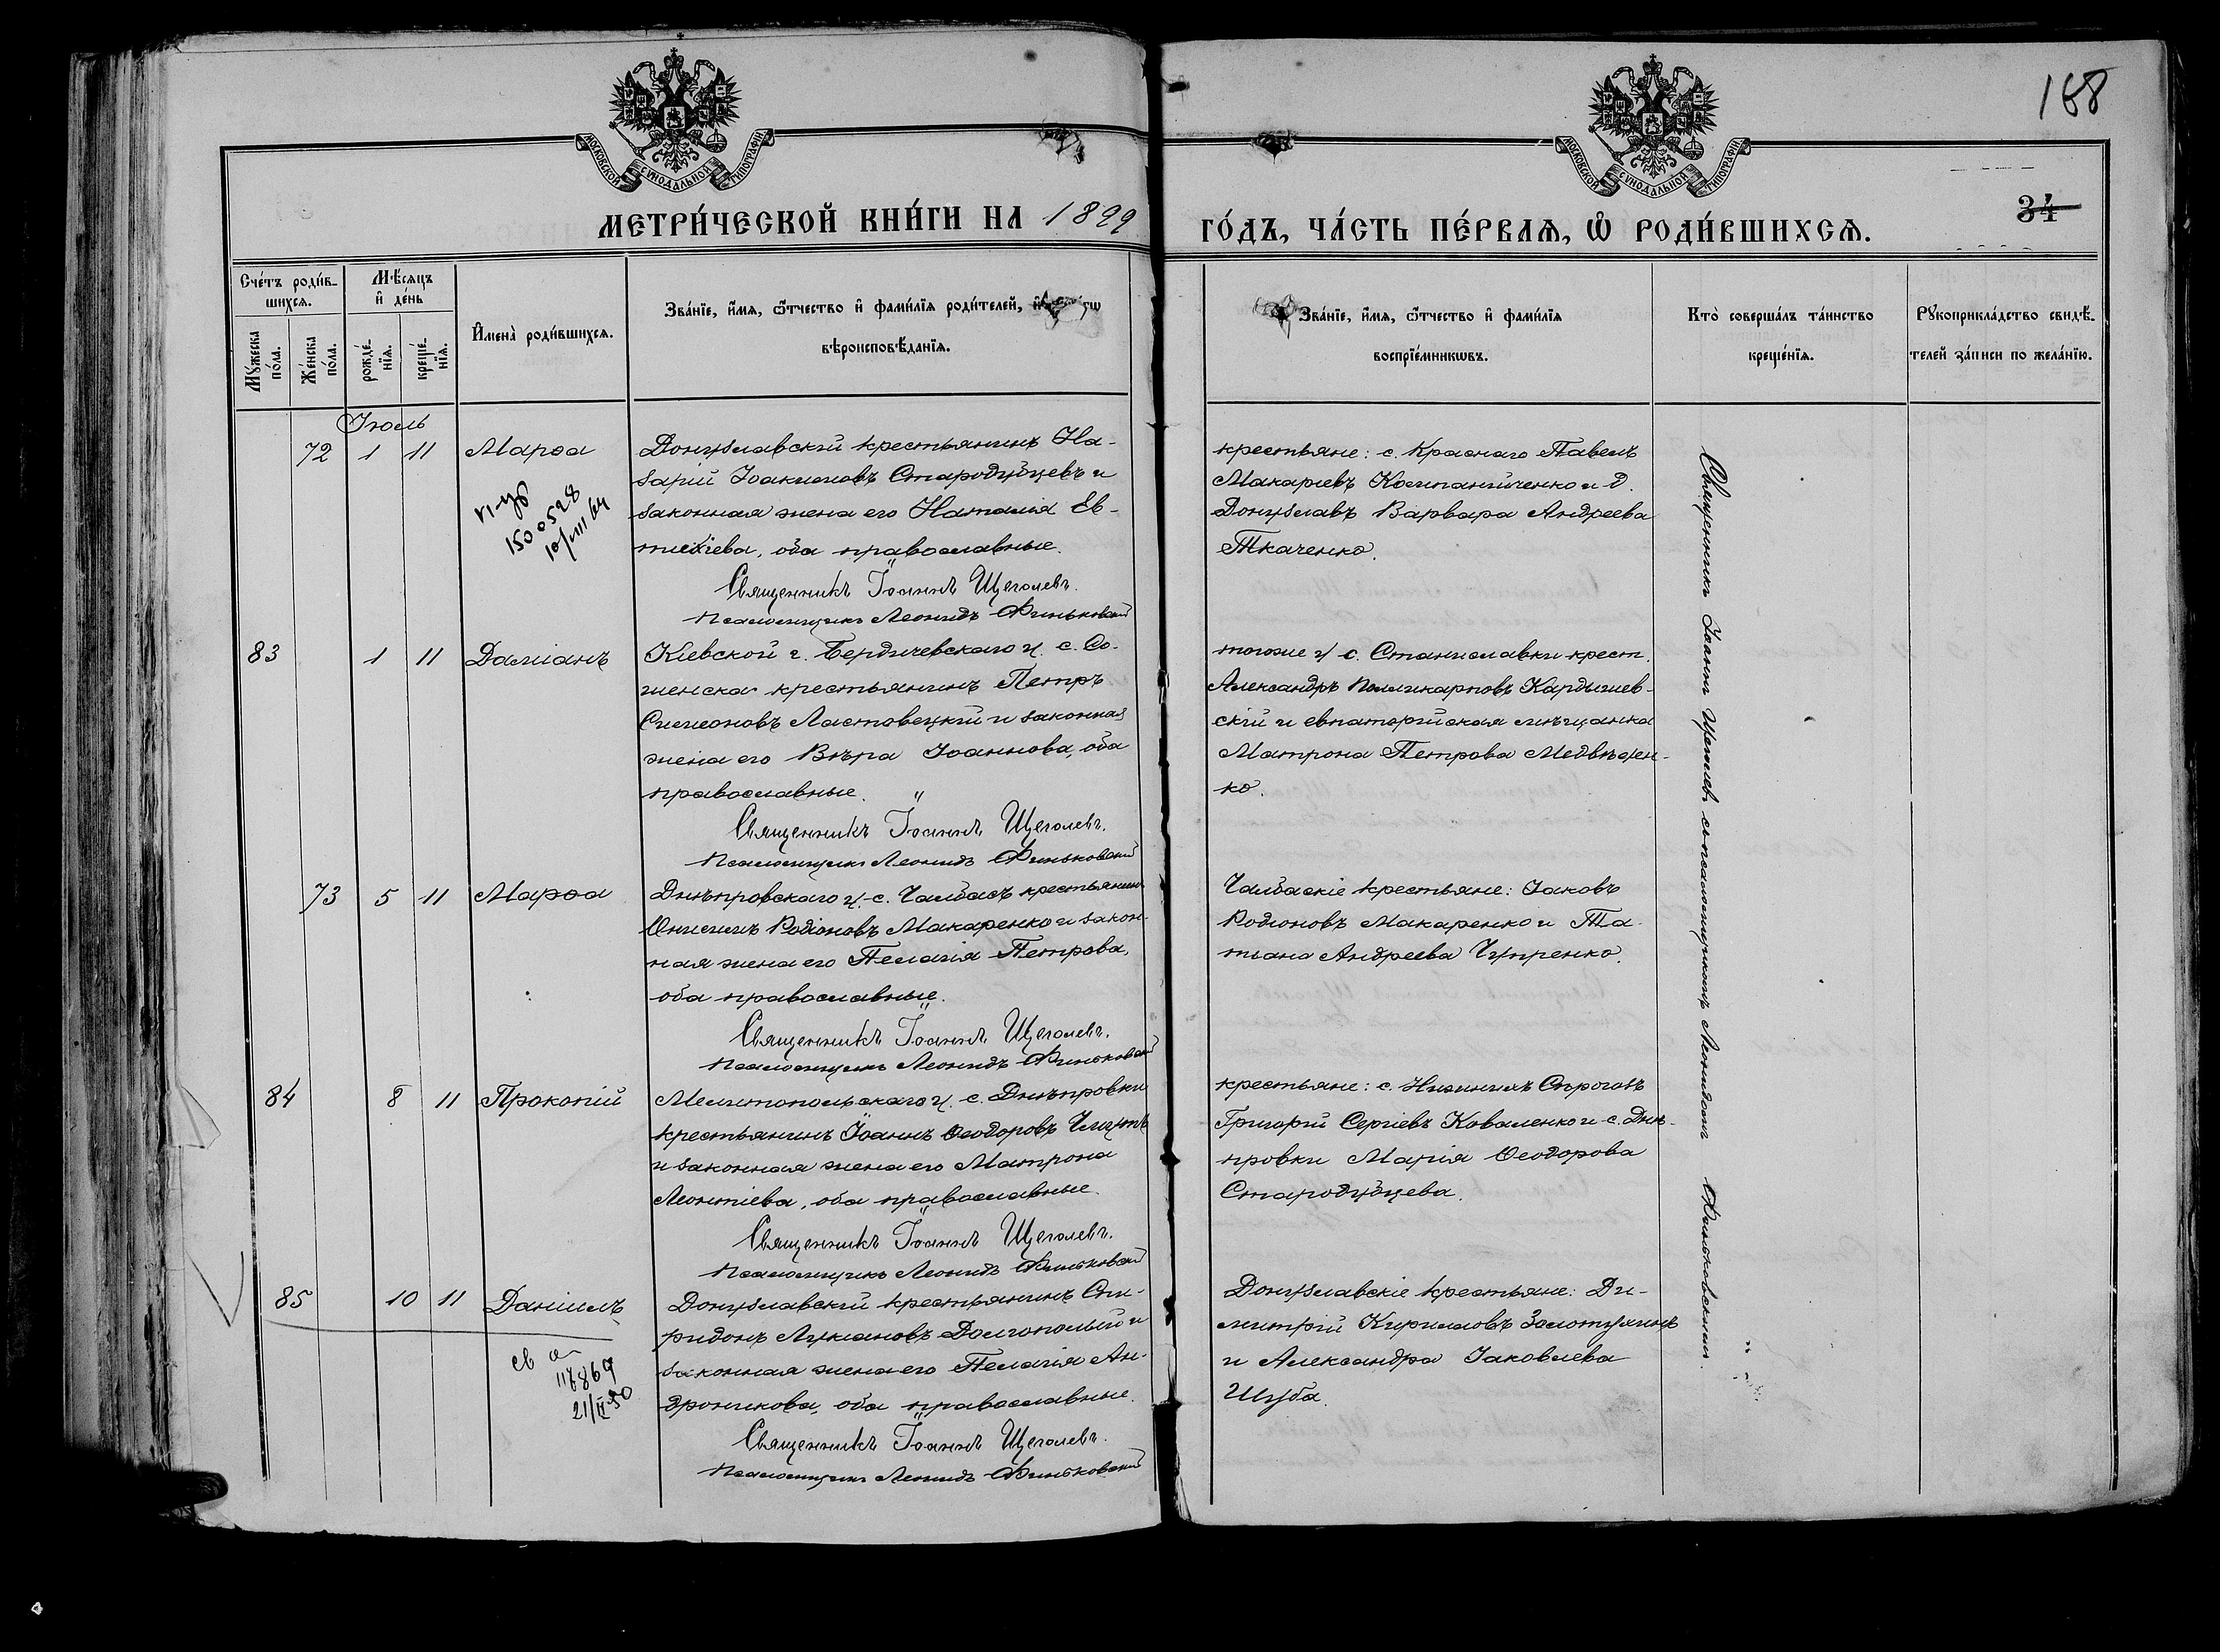 168
34
МОСКОВСКОЙ СУНОДАЛЬНОЙ ТИПОГРАФІИ
МОСКОВСКОЙ СУНОДАЛЬНОЙ ТИПОГРАФІИ
МЕТРИ́ЧЕСКОЙ КНИ́ГИ НА 1899
ГО́ДЪ, ЧА́СТЬ ПЕ́РВАѦ, Ѽ РОДИ́ВШИХСѦ.
Сче́тъ роди́в-
шихсѧ.
Мꙋ́жеска по́ла.
Же́нска по́ла.
Мѣ́сяцъ
и҆ де́нь
рожде́-
нїѧ.
креще́-
нїѧ.
И҆мена̀ роди́вшихсѧ.
Зва́нїе, и҆́мѧ, ѻ҆́тчество и҆ фами́лїѧ роди́телей, и҆
вѣроисповѣ́данїѧ.
Зва́нїе, и҆́мѧ, ѻ҆́тчество и҆ фами́лїѧ
воспрїе́мникѡвъ.
Кто̀ соверша́лъ та́инство
креще́нїѧ.
Рꙋкоприкла́дство свидѣ́-
телей за́писи по жела́нїю.
Іюль
72 1 11 Марѳа
Донузлавскій крестьянинъ На-
зарій Іоакимовъ Стародубцевъ и
законная жена его Наталія Ев-
тихіева, оба православные.
Священникъ Іоаннъ Щеголевъ.
Псаломщикъ Леонидъ Финьковскій
крестьяне: с. Краснаго Павелъ
Макаріевъ Компанийченко и д.
Донузлавъ Варвара Андреева
Ткаченко.
1500528
10/VIII 64
83 1 11 Даміанъ
Кіевской г. Бердичевскаго у. с. Со-
женска крестьянинъ Петръ
Симеоновъ Ластовецкій и законная
жена его Вѣра Іоаннова, оба
православные.
Священникъ Іоаннъ Щеголевъ.
Псаломщикъ Леонидъ Финьковскій
тогоже у с. Станиславки крест.
Александръ Поликарповъ Кардышев-
скій и евпаторійская мѣщанка
Матрона Петрова Медвѣден-
ко.
73 5 11 Марѳа
Днѣпровскаго у. с. Чалбасъ крестьянинъ
Онисимъ Родіоновъ Макаренко и закон-
ная жена его Пелагія Петрова,
оба православные.
Священникъ Іоаннъ Щеголевъ.
Псаломщикъ Леонидъ Финьковскій
Чалбаскіе крестьяне: Іаковъ
Родіоновъ Макаренко и Та-
тіана Андреева Чупренко.
84 8 11 Прокопій
Мелитопольскаго у. с. Днѣпровки
крестьянинъ Іоаннъ Ѳеодоровъ
и законная жена его Матрона
Леонтіева, оба православные.
Священникъ Іоаннъ Щеголевъ.
Псаломщикъ Леонидъ Финьковскій
крестьяне: с. Нижнихъ Сѣрогозъ
Григорій Сергіевъ Коваленко и с. Днѣ-
провки Марія Ѳеодорова
Стародубцева.
85 10 11 Даніилъ
Донузлавскій крестьянинъ Спи-
ридонъ Лукіановъ Долгополый и
законная жена его Пелагія Ан-
дроникова, оба православные.
Священникъ Іоаннъ Щеголевъ.
Псаломщикъ Леонидъ Финьковскій
Донузлавскіе крестьяне: Ди-
митрій Кирилловъ Золотухинъ
и Александра Іаковлева
Шуба.
21/IV 50
Священникъ Іоаннъ Щеголевъ съ псаломщикомъ Леонидомъ Финьковскимъ.